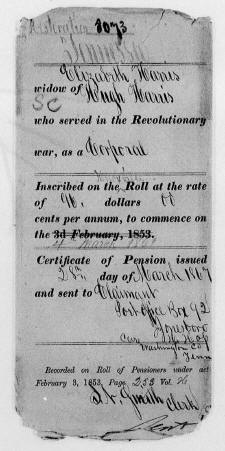 3073
Tennessee
Elizabeth Harris
widow of Hugh Harris
SC
who served in the Revolutionary
war, as a Corporal
Inscribed on the Roll at the rate
of 96 dollars 00
cents per annum, to commence on
the 3d February, 1853.
4 March
Certificate of Pension issued
28th day of March 1867
and sent to Claimant
Post Office Box 92
Jonesboro
Washington Co
Tenn
Recorded on Roll of Pensioners under act
February 3, 1853, Page 253 Vol.
Clerk